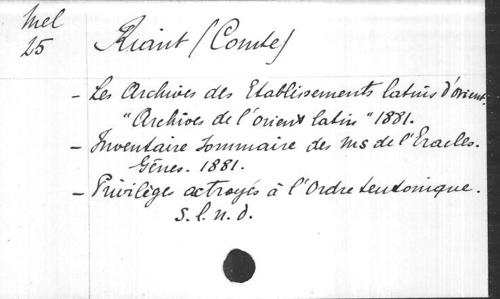 Mel
25
Riant (Comte)
- Les Archives des Etablissements latins d'orient.
"Archives de l'orient latin" 1881.
- Inventaire sommaire des ms de l'Eracles.
Gênes. 1881.
- Privilèges octroyés à l'Ordre teutonique.
s. l. n. d.